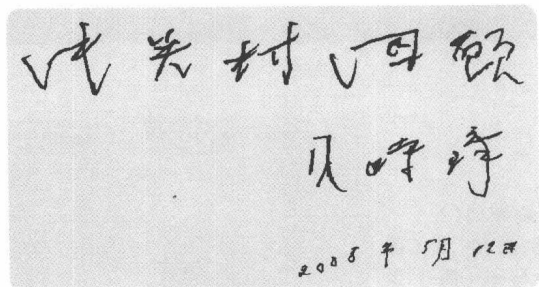 关村回顾
贝时璋
2008年5月12日